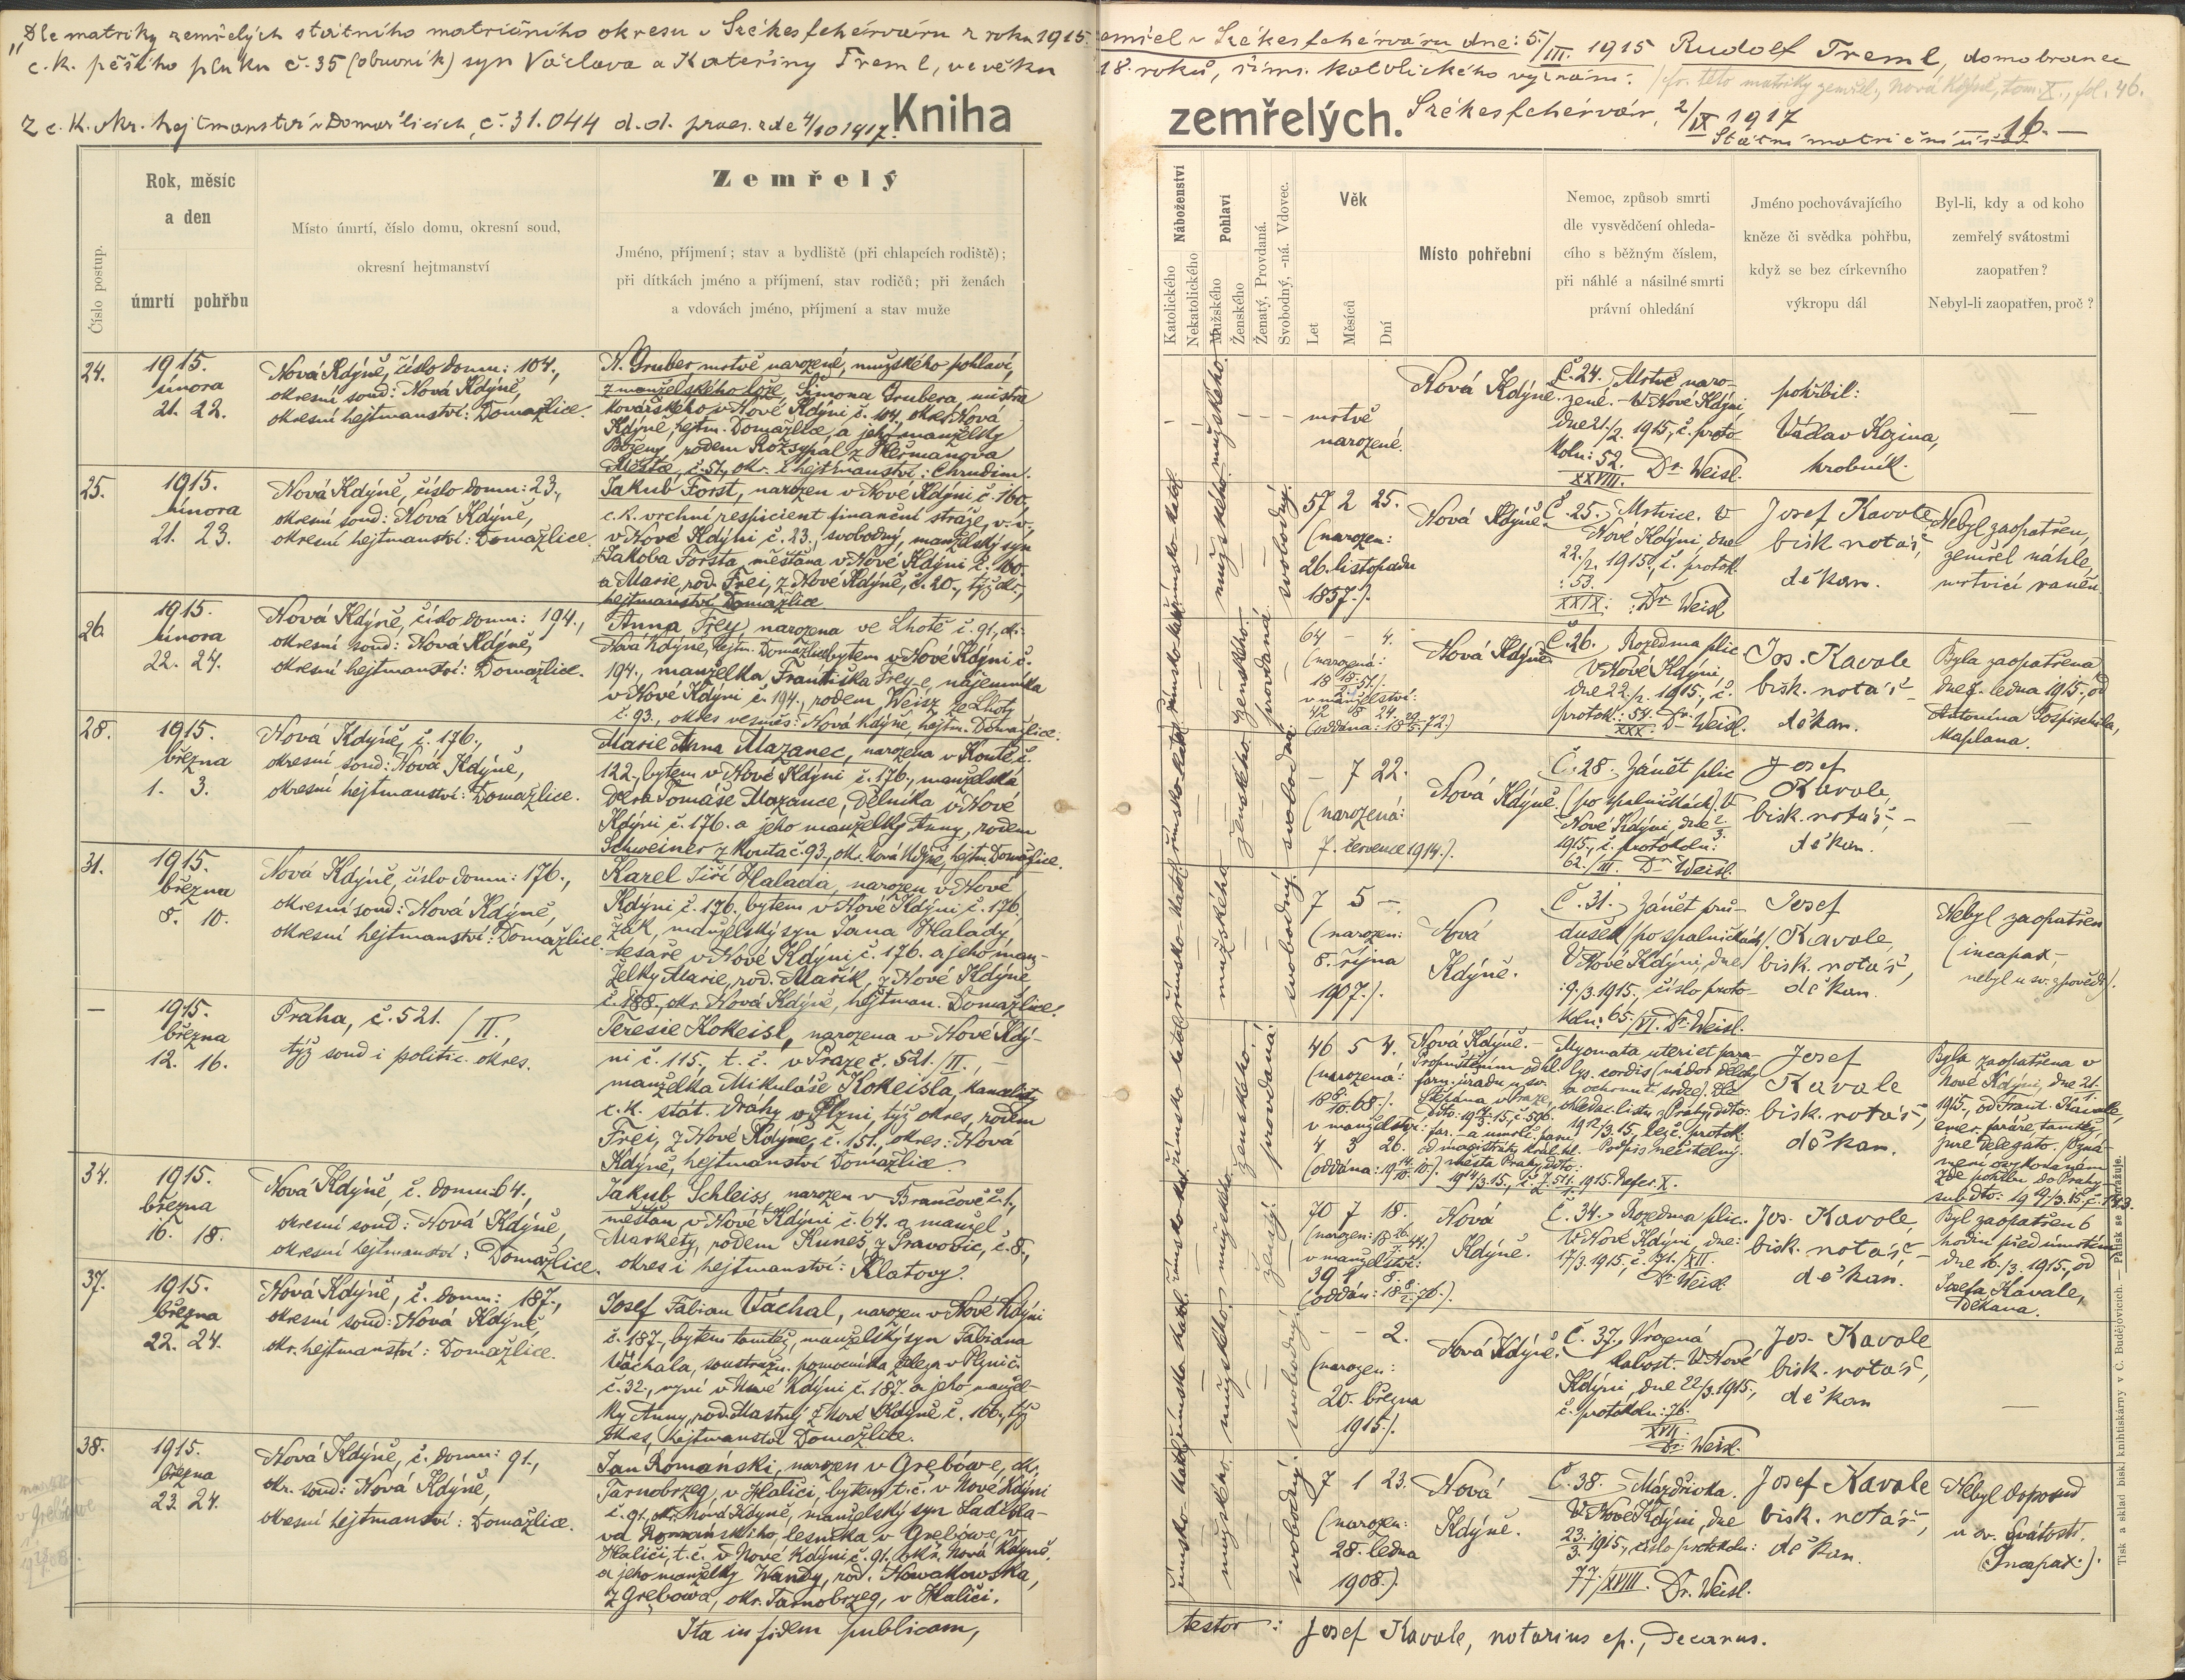 „Dle matriky zemřelých státního matričního okresu v Székesfehérváru z roku 1915. zemřel v Székesfehérváru dne: 5./III. 1915 Rudolf Treml, domobranec
c. k. pěšího pluku č. 35 (obuvník) syn Václava a Kateřiny Treml, ve věku 18. roků, řims. katolického vyznání.
/cfr. této matriky zemřel., Nová Kdýně, tom. X., fol. 46.
Z c. k. okr. hejtmanství v Domažlicích, č. 31.044 d. d. praes. z de 4/10 1917.
Székesfehérvár, 2/IX 1917
Státní matriční úřad
Kniha zemřelých.
16. —
Číslo postup.
Rok, měsíc
a den
úmrtí pohřbu
Místo úmrtí, číslo domu, okresní soud,
okresní hejtmanství
Zemřelý
Jméno, příjmení; stav a bydliště (při chlapcích rodiště);
při dítkách jméno a příjmení, stav rodičů; při ženách
a vdovách jméno, příjmení a stav muže
Náboženství
Katolického
Nekatolického
Pohlaví
Mužského
Ženského
Ženatý, Provdaná.
Svobodný, -ná. Vdovec.
Věk
Let
Měsíců
Dní
Místo pohřební
Nemoc, způsob smrti
dle vysvědčení ohleda-
cího s běžným číslem,
při náhlé a násilné smrti
právní ohledání
Jméno pochovávajícího
kněze či svědka pohřbu,
když se bez církevního
výkropu dál
Byl-li, kdy a od koho
zemřelý svátostmi
zaopatřen?
Nebyl-li zaopatřen, proč?
24.
1915.
února
21. 22.
Nová Kdýně, číslo domu: 104.,
okresní soud: Nová Kdýně,
okresní hejtmanství: Domažlice.
N. Gruber, mrtvě narozené, mužského pohlaví,
z manželského lože, Šimona Grubera, mistra
kovářského v Nové Kdýni č. 104, okres Nová
Kdýně, hejtm. Domažlice, a jeho manželky
Boženy, rodem Rozsypal z Heřmanova
Městce, č. 51., okr. i hejtmanství: Chrudim.
mužského.
mrtvě
narozené.
Nová Kdýně.
Č. 24. Mrtvě naro-
zené. – V Nové Kdýni,
dne 21./2. 1915, č. proto-
kolu: 52. Dr. Weisl.
XXVIII.
pohřbil:
Václav Kozina,
hrobník.
—
25.
1915.
února
21. 23.
Nová Kdýně, číslo domu: 23.,
okresní soud: Nová Kdýně,
okresní hejtmanství: Domažlice.
Jakub Forst, narozen v Nové Kdýni č. 160,
c. k. vrchní respicient finanční stráže, v. v.,
v Nové Kdýni č. 23., svobodný, manželský syn
Jakoba Forsta, měšťana v Nové Kdýni č. 160
a Marie, rod. Frei, z Nové Kdýně, č. 20., týž okr.,
hejtmanství Domažlice.
římsko-katol.
mužského.
svobodný.
57 2 25.
(narozen:
26. listopadu
1857.).
Nová Kdýně.
Č. 25. Mrtvice. V
Nové Kdýni, dne
22./2. 1915, č. protok.
: 53.
XXIX. : Dr. Weisl
Josef Kavale
bisk. notář,
děkan.
Nebyl zaopatřen,
zemřel náhle,
mrtvicí raněn.
26.
1915.
února
22. 24.
Nová Kdýně, číslo domu: 194.,
okresní soud: Nová Kdýně,
okresní hejtmanství: Domažlice.
Anna Frey, narozena ve Lhotě č. 91, okr.
Nová Kdýně, hejtm. Domažlice, bytem v Nové Kdýni č.
194., manželka Františka Frey-e, nájemníka
v Nové Kdýni č. 194., rodem Weisz ze Lhoty
č. 93., okres vesměs: Nová Kdýně, hejtm. Domažlice.
římsko-kat.
ženského.
provdaná.
64 – 4.
(narozená:
18 18/2. 51.).
v manželství:
42 8 24.
(oddána: 18 29/5. 72)
Nová Kdýně
Č. 26. Rozedma plic
V Nové Kdýni,
dne 22./2. 1915, č.
protok.: 54. Dr. Weisl.
XXX.
Jos. Kavale
bisk. notář
děkan.
Byla zaopatřena
dne 7. ledna 1915. od
Antonína Pospischila,
kaplana.
28.
1915.
března
1. 3.
Nová Kdýně, č. 176.,
okresní soud: Nová Kdýně,
okresní hejtmanství: Domažlice.
Marie Anna Mazanec, narozena v Koutě č.
122., bytem v Nové Kdýni č. 176., manželská
dcera Tomáše Mazance, dělníka v Nové
Kdýni č. 176. a jeho manželky Anny, rodem
Schweiner z Kouta č. 93., okr. Nová Kdýně, hejtm. Domažlice.
římsko-katol.
ženského.
svobodná.
– 7 22.
(narozená:
7. července 1914.).
Nová Kdýně.
Č. 28. Zánět plic
(po spalničkách). V
Nové Kdýni, dne 2./3.
1915, č. protokolu:
62./III. Dr. Weisl.
Josef
Kavale,
bisk. notář,
děkan.
—
31.
1915.
března
8. 10.
Nová Kdýně, číslo domu: 176.,
okresní soud: Nová Kdýně,
okresní hejtmanství: Domažlice.
Karel Jiří Halada, narozen v Nové
Kdýni č. 176., bytem v Nové Kdýni č. 176.
žák, manželský syn Jana Halady,
tesaře v Nové Kdýni č. 176. a jeho man-
želky Marie, rod. Mařík, z Nové Kdýně
č. 188., okr. Nová Kdýně, hejtman. Domažlice.
římsko-katol.
mužského.
svobodný.
7 5 –.
(narozen:
8. října
1907.).
Nová
Kdýně.
Č. 31. Zánět prů-
dušek (po spalničkách).
V Nové Kdýni, dne
9./3. 1915., číslo proto-
kolu: 65./VI. Dr. Weisl.
Josef
Kavale,
bisk. notář,
děkan.
Nebyl zaopatřen
(incapax,
nebyl u sv. zpovědi).
—
1915.
března
12. 16.
Praha, č. 521./II.,
týž soud i politic. okres.
Teresie Kokeisl, narozena v Nové Kdý-
ni č. 115., t. č. v Praze č. 521./II.,
manželka Mikuláše Kokeisla, kanclisty
c. k. stát. dráhy v Plzni, týž okres, rodem
Frei, z Nové Kdýně, č. 151., okres: Nová
Kdýně, hejtmanství Domažlice.
římsko-katol.
ženského.
provdaná.
46 5 4.
(narozená:
18 8/10. 68.).
v manželství:
4 3 26.
Nová Kdýně. –
Propuštěním od hl.
fary. úřadu u sv.
Štěpána v Praze,
od magistrátu král. hl.
města Prahy, ddto:
Myomata uteri et para-
lys. cordis (nádor dělohy
a ochrnutí srdce). Dle
ohledac. listu z Prahy ddto:
Podpis nečitelný.
Josef
Kavale
bisk. notář,
děkan.
Byla zaopatřena v
Nové Kdýni, dne 21.
1915., od Frant. Kavale,
emer. faráře, tamtéž,
jure delegato.
34.
1915.
března
16. 18.
Nová Kdýně, č. domu 64.,
okresní soud: Nová Kdýně,
okresní hejtmanství: Domažlice.
Jakub Schleiss, narozen v Brančově č. 1.,
měšťan v Nové Kdýni č. 64. a manžel
Markéty, rodem Kuneš, z Pravovic, č. 8.,
okres i hejtmanství: Klatovy.
římsko-katol.
mužského.
ženatý.
70 7 18.
(narozen: 18 26/7. 44.)
v manželství:
39 1 8.
(oddán: 18 8/2. 76.).
Nová
Kdýně.
Č. 34. Rozedma plic.
V Nové Kdýni, dne:
17/3. 1915, č. 71./XII.
Dr. Weisl
Jos. Kavale,
bisk. notář
děkan.
Byl zaopatřen 6
hodin před úmrtím
dne 16./3. 1915, od
Josefa Kavale,
děkana.
37.
1915.
března
22. 24.
Nová Kdýně, č. domu: 187.,
okresní soud: Nová Kdýně,
okr. hejtmanství: Domažlice.
Josef Fabian Váchal, narozen v Nové Kdýni
č. 187., bytem tamtéž, manželský syn Fabiana
Váchala, soustružn. pomocníka v Plzni č.
č. 32., nyní v Nové Kdýni č. 187. a jeho manžel-
ky Anny, rod. Mastný z Nové Kdýně č. 166., týž
okres, hejtmanství Domažlice.
římsko-katol.
mužského.
svobodný.
– – 2.
(narozen:
20. března
1915.).
Nová Kdýně.
Č. 37. Vrozená
slabost. V Nové
Kdýni, dne 22/3. 1915.,
č. protokolu: 76.
XVII.
Dr. Weisl.
Jos. Kavale
bisk. notář,
děkan
—
38.
1915.
března
23. 24.
Nová Kdýně, č. domu: 91.,
okr. soud: Nová Kdýně,
okresní hejtmanství: Domažlice.
Jan Romański, narozen v Grębówe, okr.
Tarnobrzeg, v Haliči, bytem t. č. v Nové Kdýni
č. 91., okr. Nová Kdyně, manželský syn Ladisla-
va Romanského, lesníka v Grębówe, v
Haliči, t. č. v Nové Kdýni č. 91. okr. Nová Kdyně,
a jeho manželky Wandy, rod. Nowakowska,
z Grębowa, okr. Tarnobrzeg, v Haliči.
římsko-katol.
mužského.
svobodný.
7 1 23.
(narozen:
28. ledna
1908.).
Nová
Kdýně.
Č. 38. Mázdřivka.
V Nové Kdýni, dne
23./3. 1915., číslo protokolu:
77./XVIII. Dr. Weisl.
Josef Kavale
bisk. notář,
děkan.
Nebyl doposud
u sv. svátostí.
(Incapax.).
Ita in fidem publicam,
testor: Josef Kavale, notarius ep., Decanus.
Tisk a sklad bisk. knihtiskárny v Č. Budějovicích. — Patisk se zakazuje.